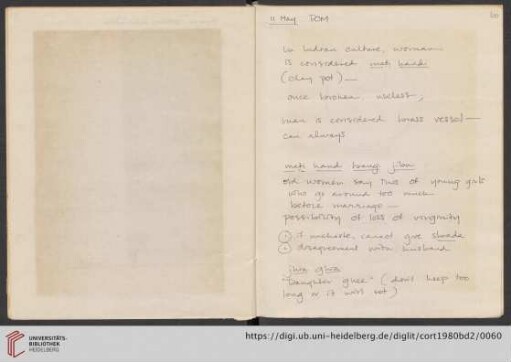 11 May DOM
In Indian culture, woman
is considered mati handi
(clay pot) —
once broken, useless,
man is considered brass vessel —
can always
mati hand
old women say this of young girls
who go around too much
before marriage —
possibility of loss of virginity
① if unchaste, cannot give
② disagreement with husband
"Daughter ghee" (don't keep too
long or it will rot)
UNIVERSITÄTS-
BIBLIOTHEK
HEIDELBERG
https://digi.ub.uni-heidelberg.de/diglit/cort1980bd2/0060